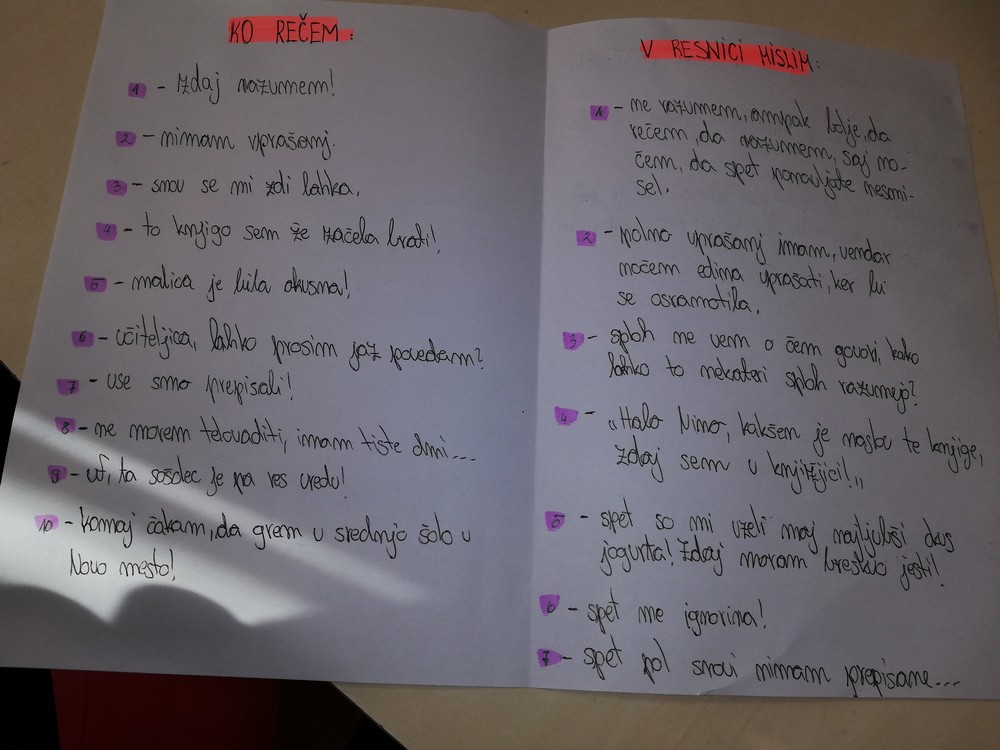 KO REČEM:
1 - Zdaj razumem!
2 - nimam vprašanj.
3 - snov se mi zdi lahka.
4 - to knjigo sem že začela brati!
5 - malica je bila okusna!
6 - učiteljica, lahko prosim jaz povedam?
7 - vse smo prepisali!
8 - ne morem telovaditi, imam tiste dni...
9 - uf, ta sošolec je pa res vredu!
10 - komaj čakam, da grem v srednjo šolo v
Novo mesto!
V RESNICI MISLIM:
1 - ne razumem, ampak bolje, da
rečem, da razumem, saj no-
čem, da spet ponavljate nesmi-
sel.
2 - polno vprašanj imam, vendar
nočem edina vprašati, ker bi
se osramotila.
3 - sploh ne vem o čem govori, kako
lahko to nekateri sploh razumejo?
4 - "Halo Nina, kakšen je naslov te knjige,
zdaj sem v knjižnici!"
5 - spet so mi vzeli moj najljubši okus
jogurta! Zdaj moram breskvo jesti!
6 - spet me ignorira!
7 - spet pol snovi nimam prepisane...